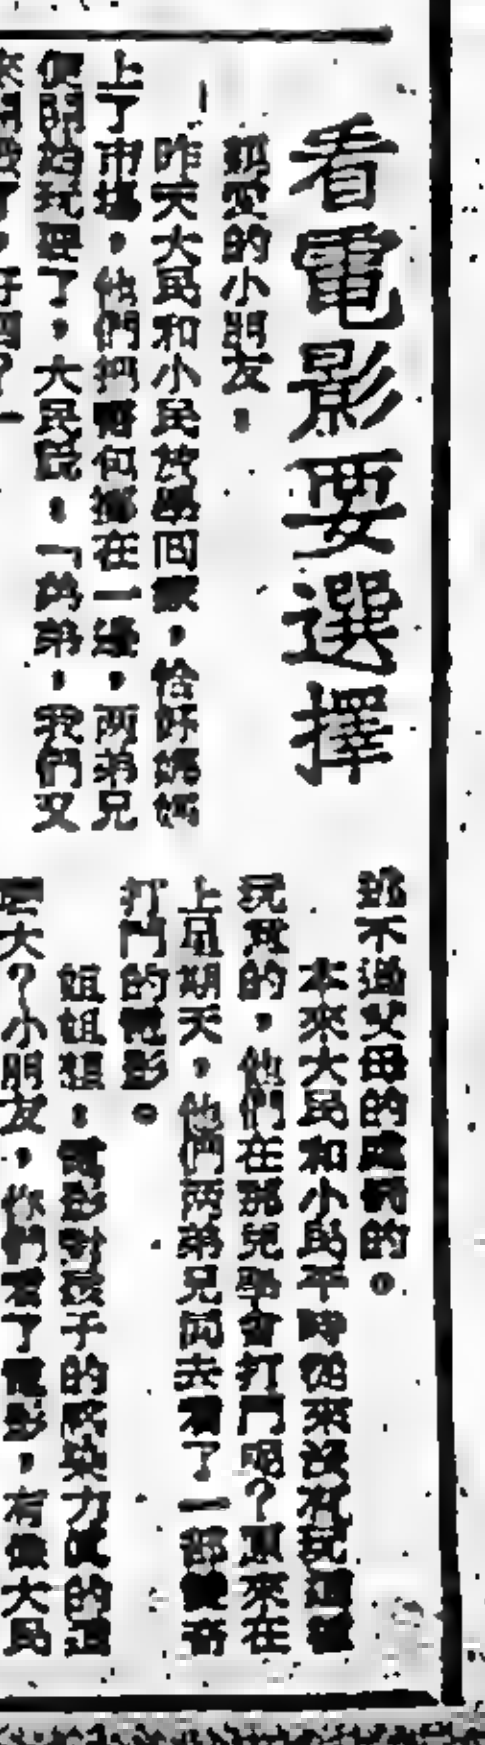 看電影要選擇
親愛的小朋友：
昨天大民和小民放學回家，恰好媽媽
上了市場，他們把書包擲在一邊，兩弟兄
便開始玩耍了，大民說：「弟弟，我們又
來
不過父母的的。
本來大民和小民平時從來沒有玩過
玩意的，他們在那兒學會打鬥呢？原來在
上星期天，他們兩弟兄同去看了一部
打鬥的電影。
姐姐想：電影對孩子的感染力真的這
大？小朋友，你們看了電影，有像大民